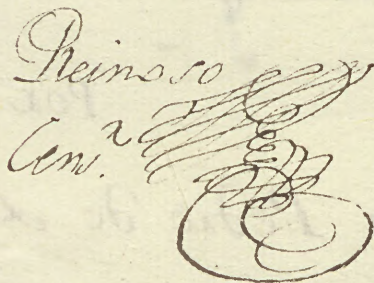 Reinoso
Cens.r